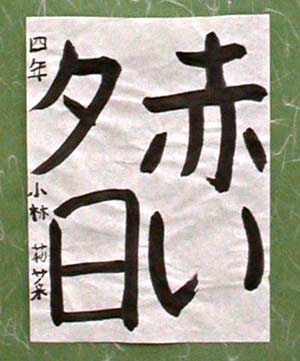 赤い
夕日
四年 小林 莉菜